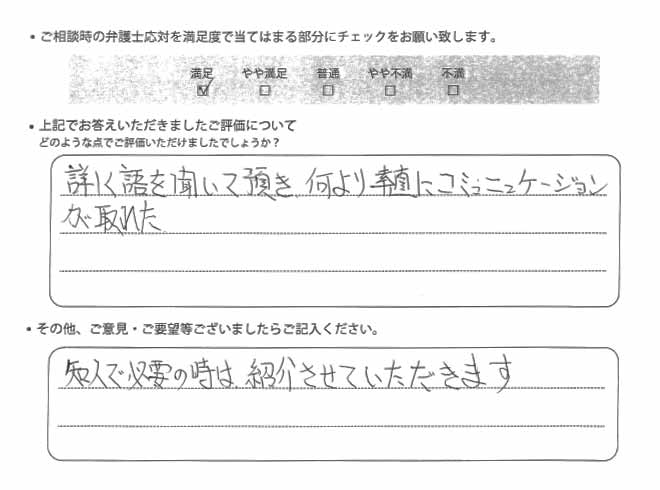 • ご相談時の弁護士応対を満足度で当てはまる部分にチェックをお願い致します。
満足 やや満足 普通 やや不満 不満
☑ ☐ ☐ ☐ ☐
• 上記でお答えいただきましたご評価について
どのような点でご評価いただけましたでしょうか?
詳しく語を聞いて頂き、何より素直にコミュニュケーション
が取れた
• その他、ご意見・ご要望等ございましたらご記入ください。
知人で必要の時は、紹介させていただきます